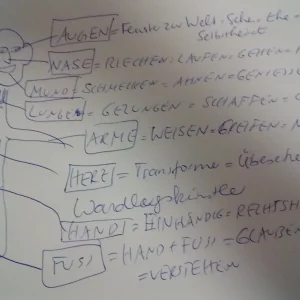 AUGEN = Fenster zur Welt
Selbst
NASE = RIECHEN = LAUFEN = GEHEN =
MUND = SCHMECKEN = AHNEN = GENIESSE
LUNGEN = GELUNGEN = SCHAFFEN =
ARME = WEISEN = GREIFEN =
HERZ = Transforma =
HAND = EINHÄNDIG = RECHTSH
FUSS = HAND + FUSS = GLAUBEN
= VERSTEHEN